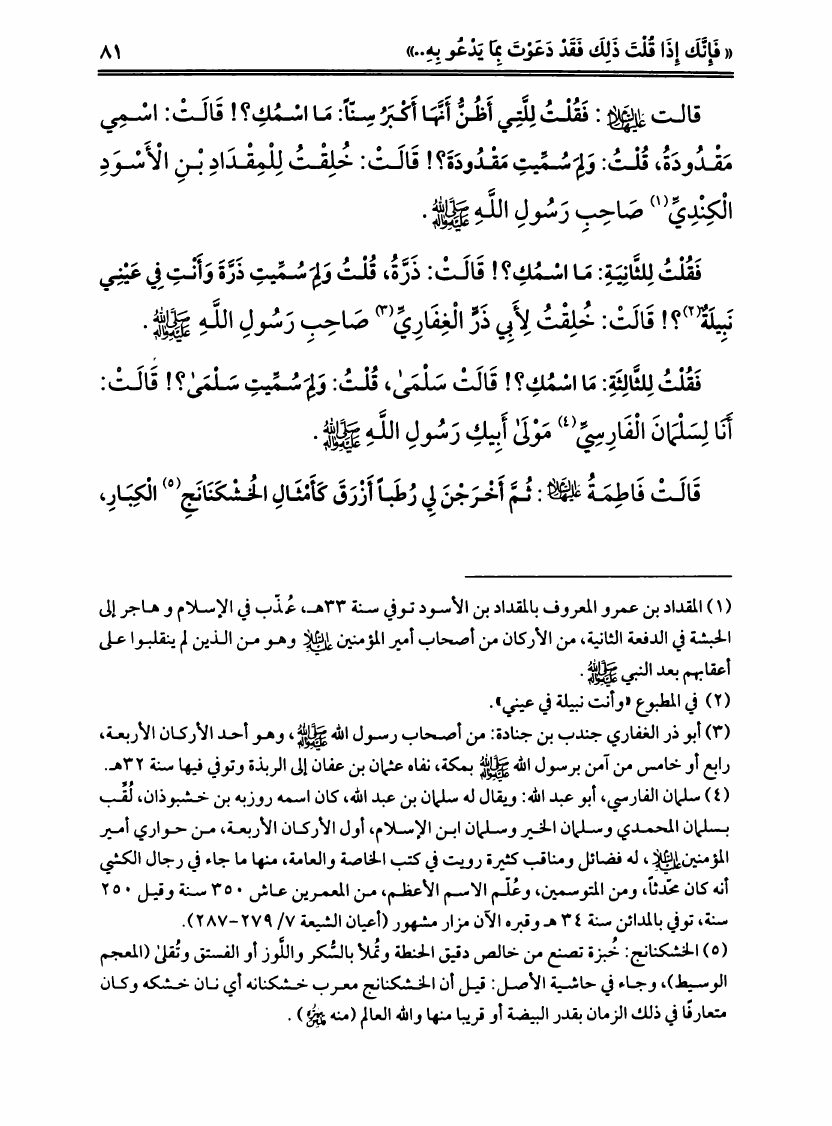 « فَإِنَّكَ إِذَا قُلْتَ ذَلِكَ فَقَدْ دَعَوْتَ بِمَا يَدْعُو بِهِ..» ٨١
قالت عليها السلام : فَقُلْتُ لِلَّتِي أَظُنُّ أَنَّهَا أَكْبَرُ سِنّاً: مَا اسْمُكِ؟! قَالَتْ: اسْمِي
مَقْدُودَةُ، قُلْتُ: وَلِمَ سُمِّيتِ مَقْدُودَةَ؟! قَالَتْ: خُلِقْتُ لِلْمِقْدَادِ بْنِ الْأَسْوَدِ
الْكِنْدِيِّ(١) صَاحِبِ رَسُولِ اللَّهِ ﷺ.
فَقُلْتُ لِلثَّانِيَةِ: مَا اسْمُكِ؟! قَالَتْ: ذَرَّةُ، قُلْتُ وَلِمَ سُمِّيتِ ذَرَّةَ وَأَنْتِ فِي عَيْنِي
نَبِيلَةٌ(٢)؟! قَالَتْ: خُلِقْتُ لِأَبِي ذَرٍّ الْغِفَارِيِّ(٣) صَاحِبِ رَسُولِ اللَّهِ ﷺ.
فَقُلْتُ لِلثَّالِثَةِ: مَا اسْمُكِ؟! قَالَتْ سَلْمَى، قُلْتُ: وَلِمَ سُمِّيتِ سَلْمَى؟! قَالَتْ:
أَنَا لِسَلْمَانَ الْفَارِسِيِّ(٤) مَوْلَى أَبِيكِ رَسُولِ اللَّهِ ﷺ.
قَالَتْ فَاطِمَةُ عليها السلام : ثُمَّ أَخْرَجْنَ لِي رُطَباً أَزْرَقَ كَأَمْثَالِ الخُشْكَنَانَجِ(٥) الْكِبَارِ،
(١) المقداد بن عمرو المعروف بالمقداد بن الأسود توفي سنة ٣٣هـ، عُذّب في الإسلام و هاجر إلى
الحبشة في الدفعة الثانية، من الأركان من أصحاب أمير المؤمنين عليه السلام وهو من الذين لم ينقلبوا على
أعقابهم بعد النبي ﷺ.
(٢) في المطبوع «وأنت نبيلة في عيني».
(٣) أبو ذر الغفاري جندب بن جنادة: من أصحاب رسول الله ﷺ، وهو أحد الأركان الأربعة،
رابع أو خامس من آمن برسول الله ﷺ بمكة، نفاه عثمان بن عفان إلى الربذة وتوفي فيها سنة ٣٢هـ.
(٤) سلمان الفارسي، أبو عبد الله: ويقال له سلمان بن عبد الله، كان اسمه روزبه بن خشبوذان، لُقِّب
بسلمان المحمدي وسلمان الخير وسلمان ابن الإسلام، أول الأركان الأربعة، من حواري أمير
المؤمنين عليه السلام، له فضائل ومناقب كثيرة رويت في كتب الخاصة والعامة، منها ما جاء في رجال الكشي
أنه كان محدّثاً، ومن المتوسمين، وعُلّم الاسم الأعظم، من المعمرين عاش ٣٥٠ سنة وقيل ٢٥٠
سنة، توفي بالمدائن سنة ٣٤ هـ وقبره الآن مزار مشهور (أعيان الشيعة ٧/ ٢٧٩-٢٨٧).
(٥) الخشكنانج: خُبزة تصنع من خالص دقيق الحنطة وتُملأ بالسُّكر واللَّوز أو الفستق وتُقلىٰ (المعجم
الوسيط)، وجاء في حاشية الأصل: قيل أن الخشكنانج معرب خشكنانه أي نان خشكه وكان
متعارفًا في ذلك الزمان بقدر البيضة أو قريبا منها والله العالم (منه).